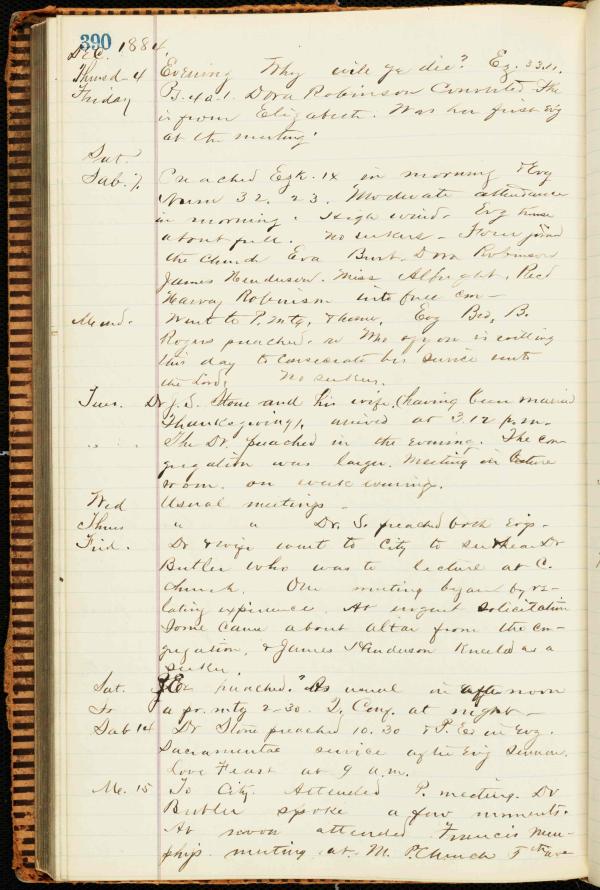 390
Dec. 1884.
Thursd. 4 Evening Why will ye die? Ez. 33.11.
Friday Ps. 4 a.1. Dora Robinson Converted. She
is from Elizabeth. Was her first Evg
at the meeting.
Sat.
Sab. 7. Preached Ezk. 1x in morning & Evg
Num 32. 23. Moderate attendance
in morning. High wind. Evg house
about full. No seekers - Four joined
the church Eva Burt. Dora Robinson
James Henderson. Miss Albright. Recd
Harvey Robinson into full con-
Mond. Went to P. Mtg. & home. Evg Bro. B.
Rogers preached. Who of you is willing
this day to consecrate his service unto
the Lord. No seekers.
Tues. Dr J. S. Stone and his wife, (having been married
Thanksgiving), arrived at 3.12 p.m.
" " The Dr. preached in the evening. The con-
gregation was larger. Meeting in Lecture
room. on week evening.
Wed Usual meetings -
Thurs " " Dr. S. preached both Evgs -
Frid. Dr & wife went to City to see & hear Dr
Butler who was to lecture at C.
Church. Our meeting began by re-
lating experience. At urgent solicitation
Some came about altar from the con-
gregation, & James Henderson kneeled as a
seeker.
Sat. preached. As usual in afternoon
a pr. mtg 2-30. at night -
Sab 14 Dr Stone preached 10.30 & P. Es in Evg.
Sacramental service after Evg Sermon.
Love Feast at 9 a.m.
Mo. 15 To City. Attended P. meeting. Dr
Butler spoke a few moments.
At noon attended Francis Mur-
phip meeting at M. P. Church